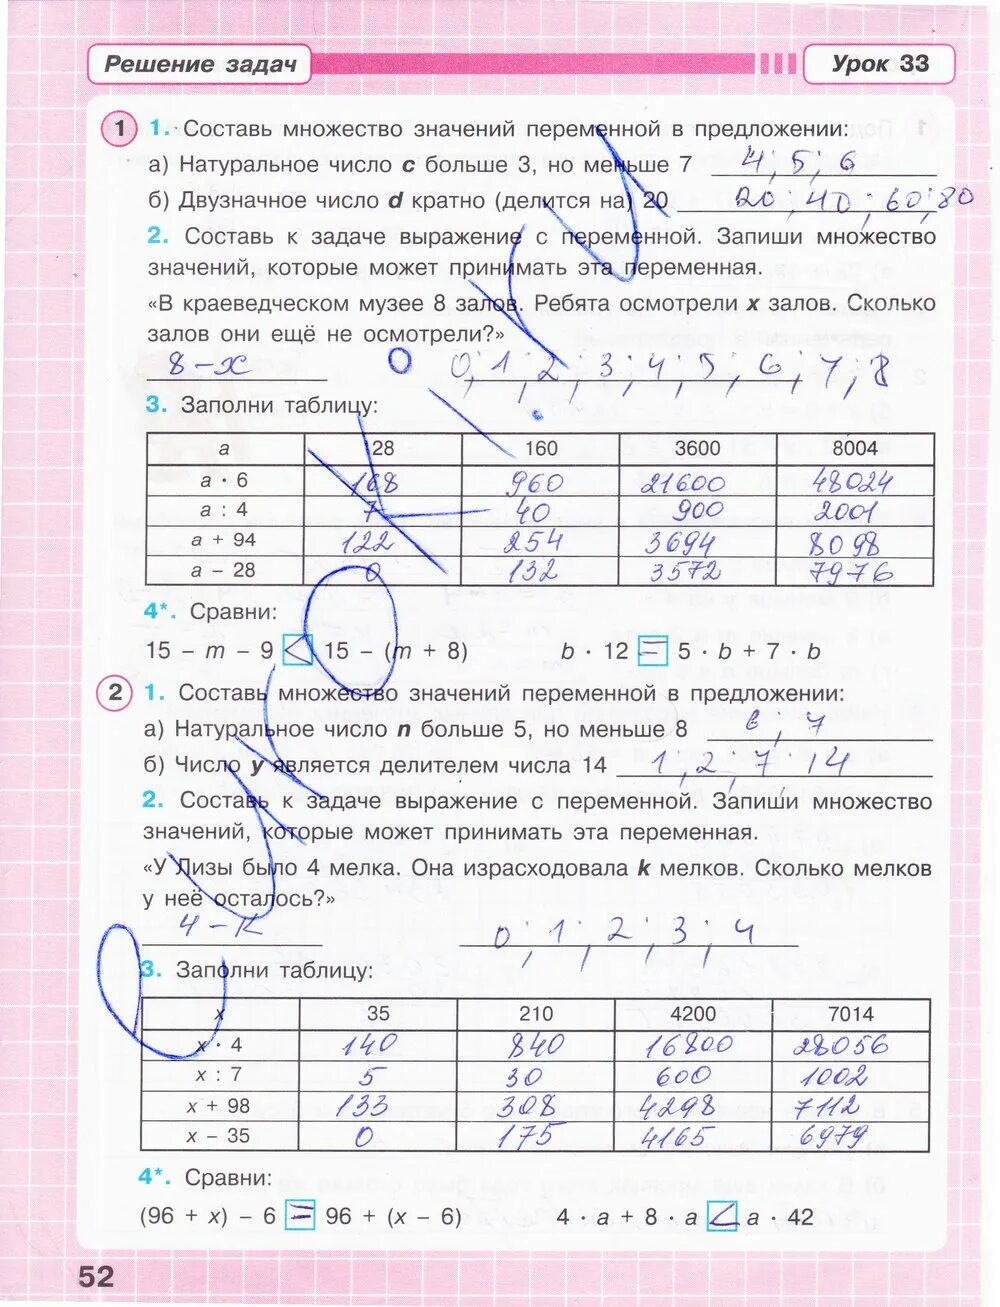 Решение задач
Урок 33
1 1. Составь множество значений переменной в предложении:
а) Натуральное число c больше 3, но меньше 7 4; 5; 6
б) Двузначное число d кратно (делится на) 20 20; 40; 60; 80
2. Составь к задаче выражение с переменной. Запиши множество
значений, которые может принимать эта переменная.
«В краеведческом музее 8 залов. Ребята осмотрели x залов. Сколько
залов они ещё не осмотрели?»
8 – x 0; 1; 2; 3; 4; 5; 6; 7; 8
3. Заполни таблицу:
a 28 160 3600 8004
a · 6 168 960 21600 48024
a : 4 7 40 900 2001
a + 94 122 254 3694 8098
a – 28 0 132 3572 7976
4*. Сравни:
15 – m – 9 < 15 – (m + 8) b · 12 = 5 · b + 7 · b
2 1. Составь множество значений переменной в предложении:
а) Натуральное число n больше 5, но меньше 8 6, 7
б) Число y является делителем числа 14 1, 2, 7 14
2. Составь к задаче выражение с переменной. Запиши множество
значений, которые может принимать эта переменная.
«У Лизы было 4 мелка. Она израсходовала k мелков. Сколько мелков
у неё осталось?»
4 – k 0; 1; 2; 3; 4
3. Заполни таблицу:
x 35 210 4200 7014
x · 4 140 840 16800 28056
x : 7 5 30 600 1002
x + 98 133 308 4298 7112
x – 35 0 175 4165 6979
4*. Сравни:
(96 + x) – 6 = 96 + (x – 6) 4 · a + 8 · a < a · 42
52